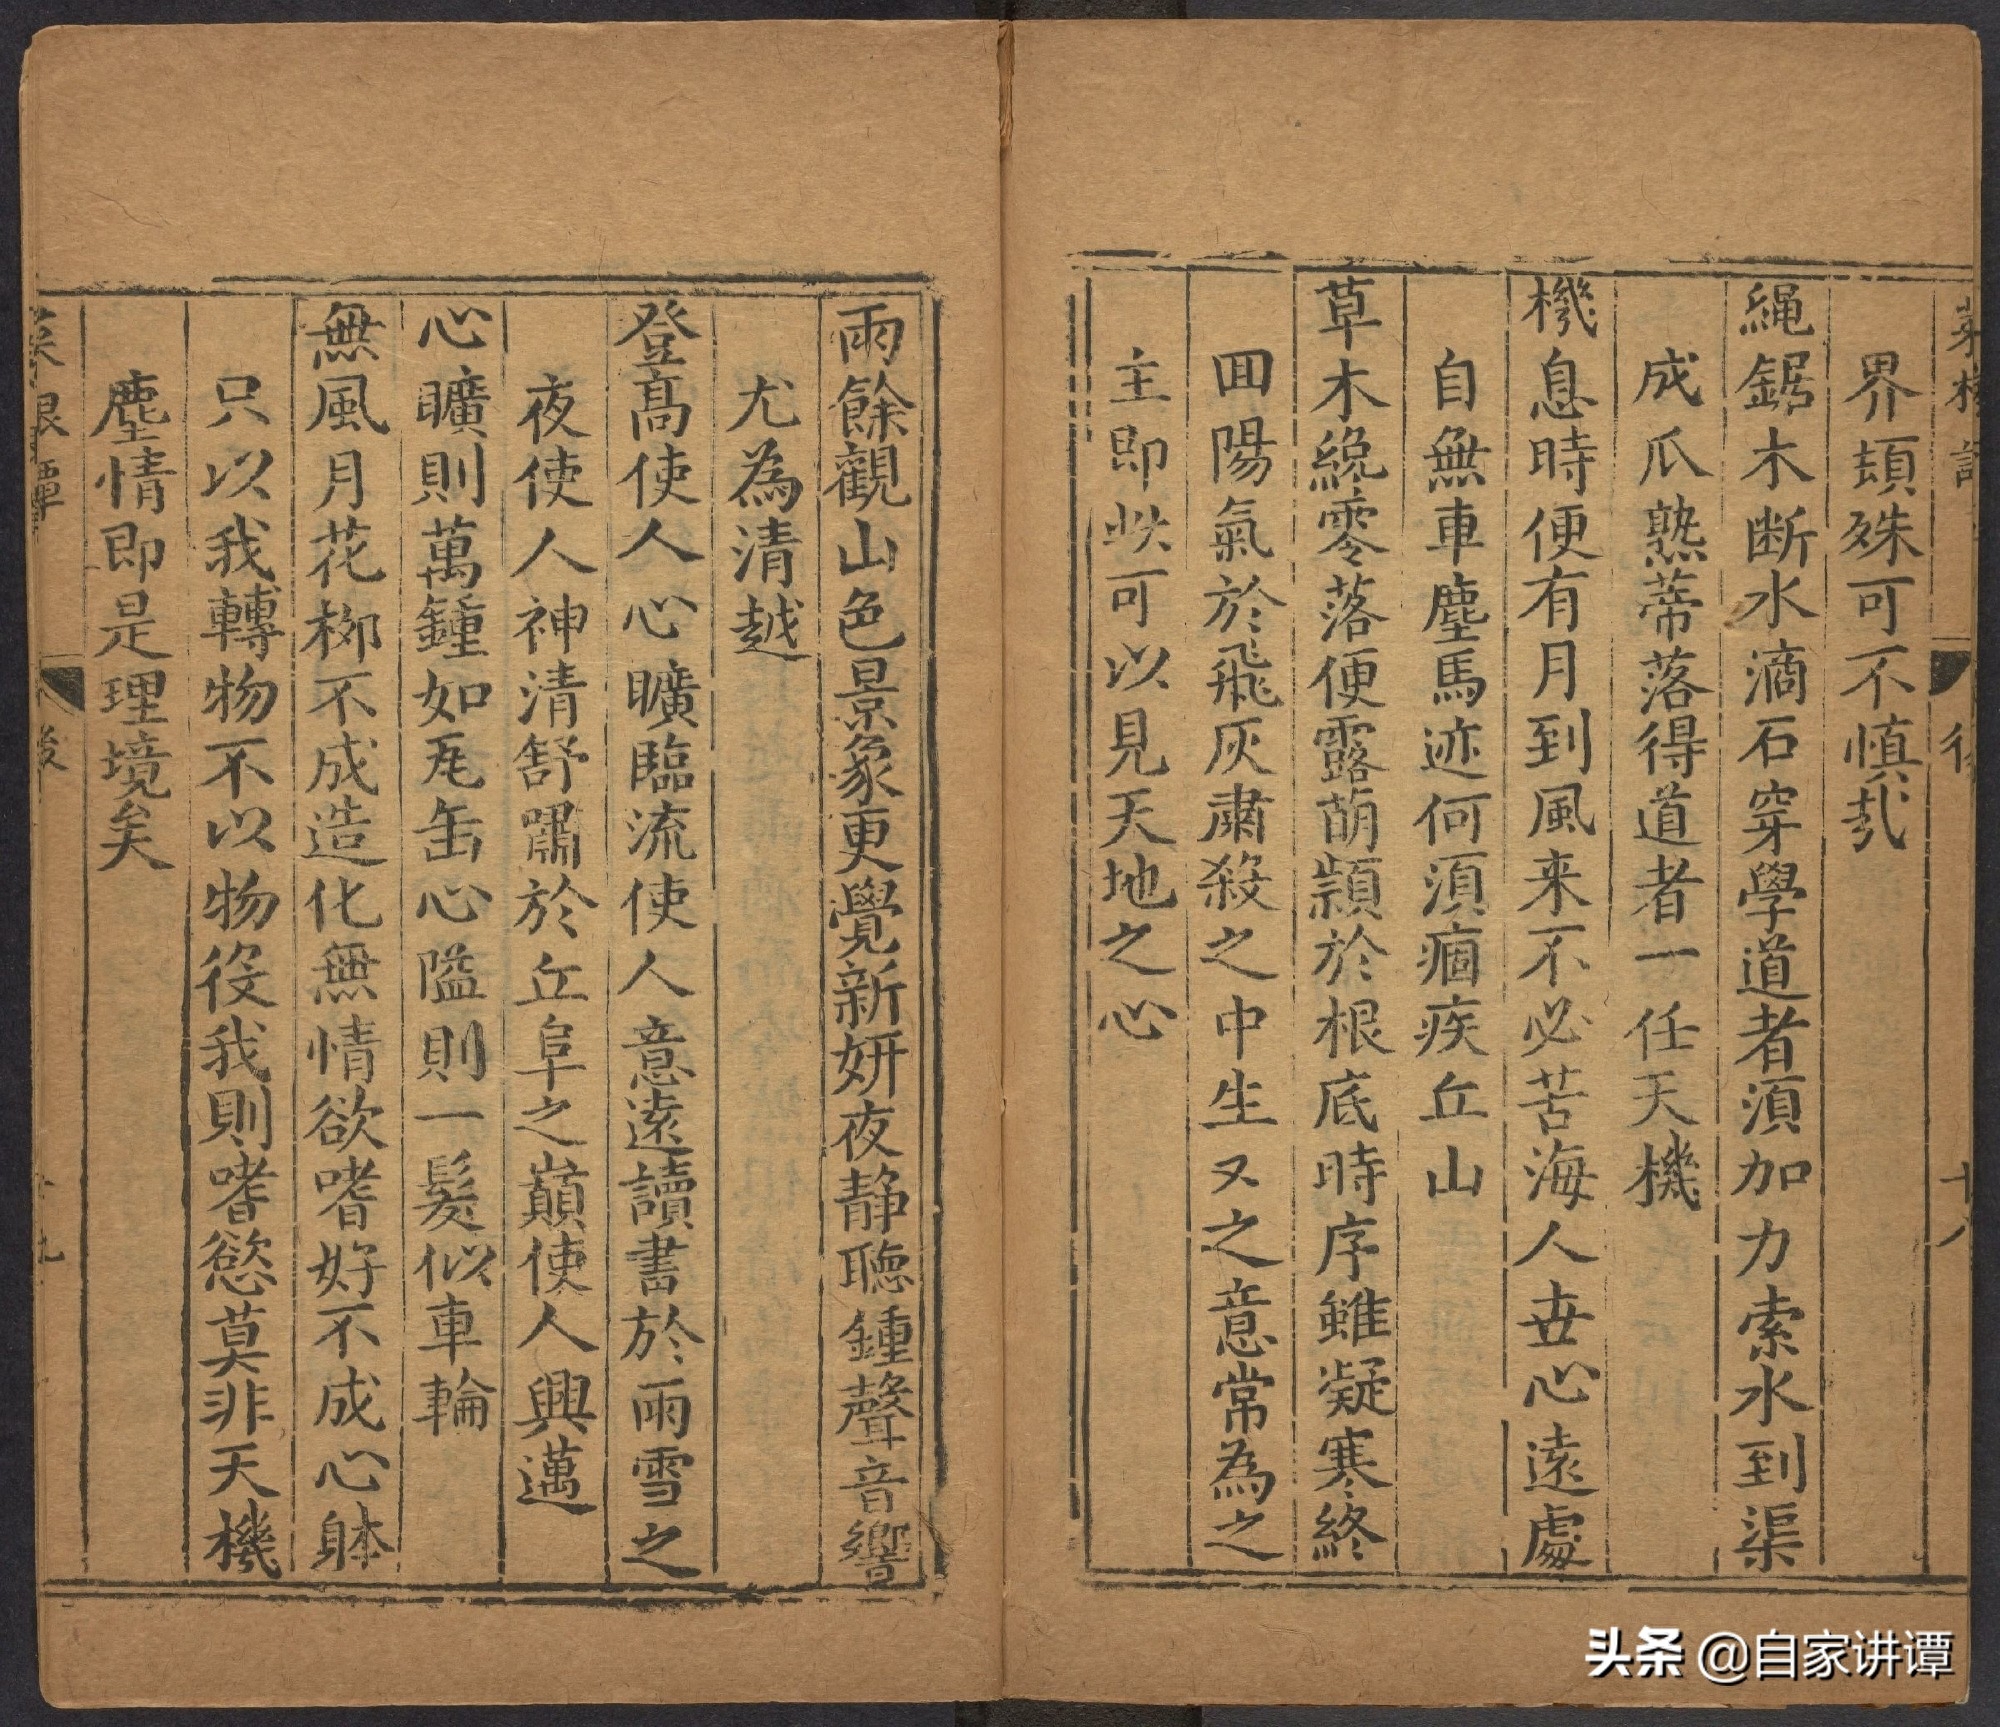 界頓殊可不慎㦲
繩鋸木断水滴石穿學道者湏加力索水到渠
成瓜熟蒂落得道者一任天機
機息時便有月到風来不必苦海人世心逺處
自無車塵馬迹何湏痼疾丘山
草木纔零落便露萌頴於根底時序雖凝寒終
囬陽氣於飛灰肅殺之中生又之意常為之
主即此可以見天地之心
十八
雨餘觀山色景象更覺新妍夜静聽鍾聲音響
尤為清越
登高使人心曠臨流使人意逺讀書於雨雪之
夜使人神清舒嘯於丘阜之巔使人興邁
心曠則萬鍾如瓦缶心隘則一髮似車輪
無風月花栁不成造化無情欲嗜好不成心躰
只以我轉物不以物役我則嗜慾莫非天機
塵情即是理境矣
菜根譚
後
头条 @自家讲谭